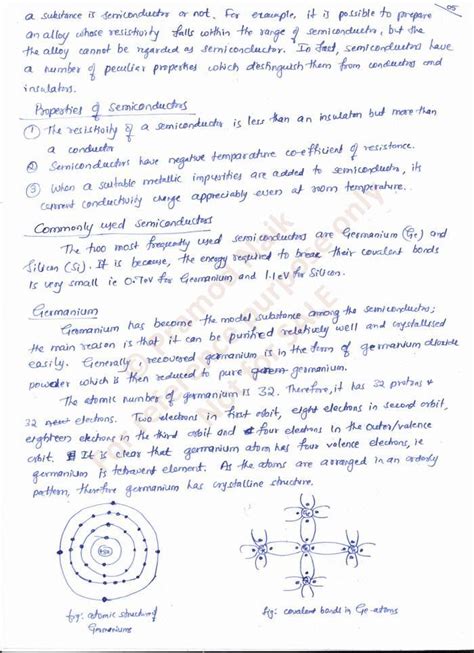 05
a substance is semiconductor or not. For example, it is possible to prepare
an alloy whose resistivity falls within the range of semiconductor, but the
the alloy cannot be regarded as semiconductor. In fact, semiconductors have
a number of peculiar properties which distinguish them from conductors and
insulators.
Properties of Semiconductors
① The resistivity of a semiconductor is less than an insulator but more than
a conductor
② Semiconductors have negative temparature co-efficient of resistance.
③ When a suitable metallic impurities are added to semiconductor, its
current conductivity change appreciably even at room temperature.
Commonly used semiconductors
The two most frequently used semiconductors are Germanium (Ge) and
Silicon (Si). It is because, the energy required to break their covalent bonds
is very small ie 0.7eV for Germanium and 1.1eV for Silicon.
Germanium
Germanium has become the model substance among the semiconductors;
the main reason is that it can be purified relatively well and crystallised
easily. Generally recovered germanium is in the form of germanium dioxide
powder which is then reduced to pure germanium.
The atomic number of germanium is 32. Therefore, it has 32 protons &
32 electrons. Two electrons in first orbit, eight electrons in second orbit,
eighteen elections in the third orbit and four electrons in the outer/valence
orbit. It is clear that germanium atom has four valence electrons, ie
germanium is tetravent element. As the atoms are arranged in an orderly
pattern, therefore germanium has crystalline structure.
Ge
Ge
Ge
Ge
Ge
fig: atomic structure of
Germaniums
fig: covalent bonds in Ge-atoms